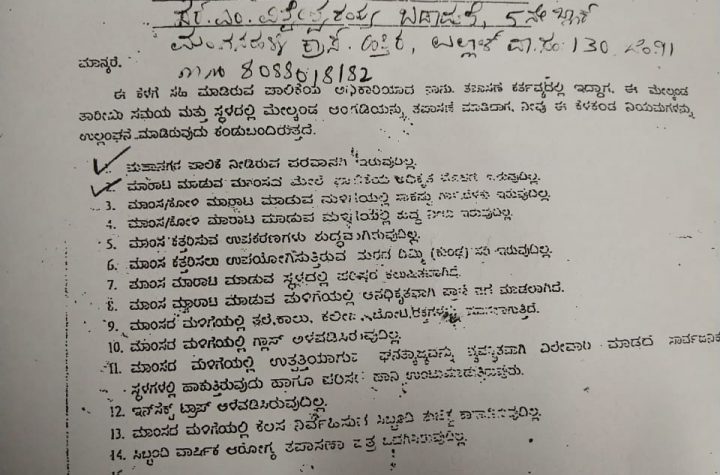 ಸರ್.ಎಂ. ವಿಶ್ವೇಶ್ವರಯ್ಯ ಬಡಾವಣೆ, 5ನೇ ಬ್ಲಾಕ್
ಕ್ರಾಸ್. ಉಲ್ಲಾಳ್ ವಾ.ಸಂ: 130
ಮಾನ್ಯರೆ.
8088018182
ಈ ಕೆಳಗೆ ಸಹಿ ಮಾಡಿರುವ ಪಾಲಿಕೆಯ ಅಧಿಕಾರಿಯಾದ ನಾನು. ತಪಾಸಣೆ ಕರ್ತವ್ಯದಲ್ಲಿ ಇದ್ದಾಗ, ಈ ಮೇಲ್ಕಂಡ
ತಾರೀಖು ಸಮಯ ಮತ್ತು ಸ್ಥಳದಲ್ಲಿ ಮೇಲ್ಕಂಡ ಅಂಗಡಿಯನ್ನು ತಪಾಸಣೆ ಮಾಡಿದಾಗ, ನೀವು ಈ ಕೆಳಕಂಡ ನಿಯಮಗಳನ್ನು
ಉಲ್ಲಂಘನೆ ಮಾಡಿರುವುದು ಕಂಡುಬಂದಿರುತ್ತದೆ.
ಮಹಾನಗರ ಪಾಲಿಕೆ ನೀಡಿರುವ ಪರವಾನಗಿ ಇರುವುದಿಲ್ಲ.
ಮಾರಾಟ ಮಾಡುವ ಮಾಂಸದ ಮೇಲೆ ಪಾಲಿಕೆಯ ಅಧಿಕೃತ ಇರುವುದಿಲ್ಲ.
3. ಮಾಂಸ/ಕೋಳಿ ಮಾರಾಟ ಮಾಡುವ ಮಳಿಗೆಯಲ್ಲಿ ಇರುವುದಿಲ್ಲ.
4. ಮಾಂಸ/ಕೋಳಿ ಮಾರಾಟ ಮಾಡುವ ಮಳಿಗೆಯಲ್ಲಿ ಶುದ್ಧ ನೀರು ಇರುವುದಿಲ್ಲ.
5. ಮಾಂಸ ಕತ್ತರಿಸುವ ಉಪಕರಣಗಳು ಶುದ್ಧವಾಗಿರುವುದಿಲ್ಲ.
6. ಮಾಂಸ ಕತ್ತರಿಸಲು ಉಪಯೋಗಿಸುತ್ತಿರುವ ಮರದ ದಿಮ್ಮಿ ಸರಿ ಇರುವುದಿಲ್ಲ.
7. ಮಾಂಸ ಮಾರಾಟ ಮಾಡುವ ಸ್ಥಳದಲ್ಲಿ ಪರಿಸರ ಕಲುಷಿತವಾಗಿದೆ.
8. ಮಾಂಸ ಮಾರಾಟ ಮಾಡುವ ಮಳಿಗೆಯಲ್ಲಿ ಅನಧಿಕೃತವಾಗಿ ಪ್ರಾಣಿ ವಧೆ ಮಾಡಲಾಗಿದೆ.
9. ಮಾಂಸದ ಮಳಿಗೆಯಲ್ಲಿ ತಲೆ,ಕಾಲು,
10. ಮಾಂಸದ ಮಳಿಗೆಯಲ್ಲಿ ಗ್ಲಾಸ್ ಅಳವಡಿಸಿರುವುದಿಲ್ಲ.
11. ಮಾಂಸದ ಮಳಿಗೆಯಲ್ಲಿ ಉತ್ಪತ್ತಿಯಾಗುವ ಘನತ್ಯಾಜ್ಯವನ್ನು ವ್ಯವಸ್ಥಿತವಾಗಿ ವಿಲೇವಾರಿ ಮಾಡದೆ ಸಾರ್ವಜನಿಕ
ಸ್ಥಳಗಳಲ್ಲಿ ಹಾಕುತ್ತಿರುವುದು ಹಾಗೂ ಪರಿಸರ ಹಾನಿ ಉಂಟುಮಾಡುತ್ತಿರುವುದು.
12. ಇನ್‌ಸೆಕ್ಟ್ ಟ್ರಾಪ್ ಅಳವಡಿಸಿರುವುದಿಲ್ಲ.
13. ಮಾಂಸದ ಮಳಿಗೆಯಲ್ಲಿ ಕೆಲಸ ನಿರ್ವಹಿಸುವ ಸಿಬ್ಬಂದಿ ಶುಚಿತ್ವ ಕಾಪಾಡಿರುವುದಿಲ್ಲ.
14. ಸಿಬ್ಬಂದಿ ವಾರ್ಷಿಕ ಆರೋಗ್ಯ ತಪಾಸಣಾ ಪತ್ರ ಒದಗಿಸಿರುವುದಿಲ್ಲ.